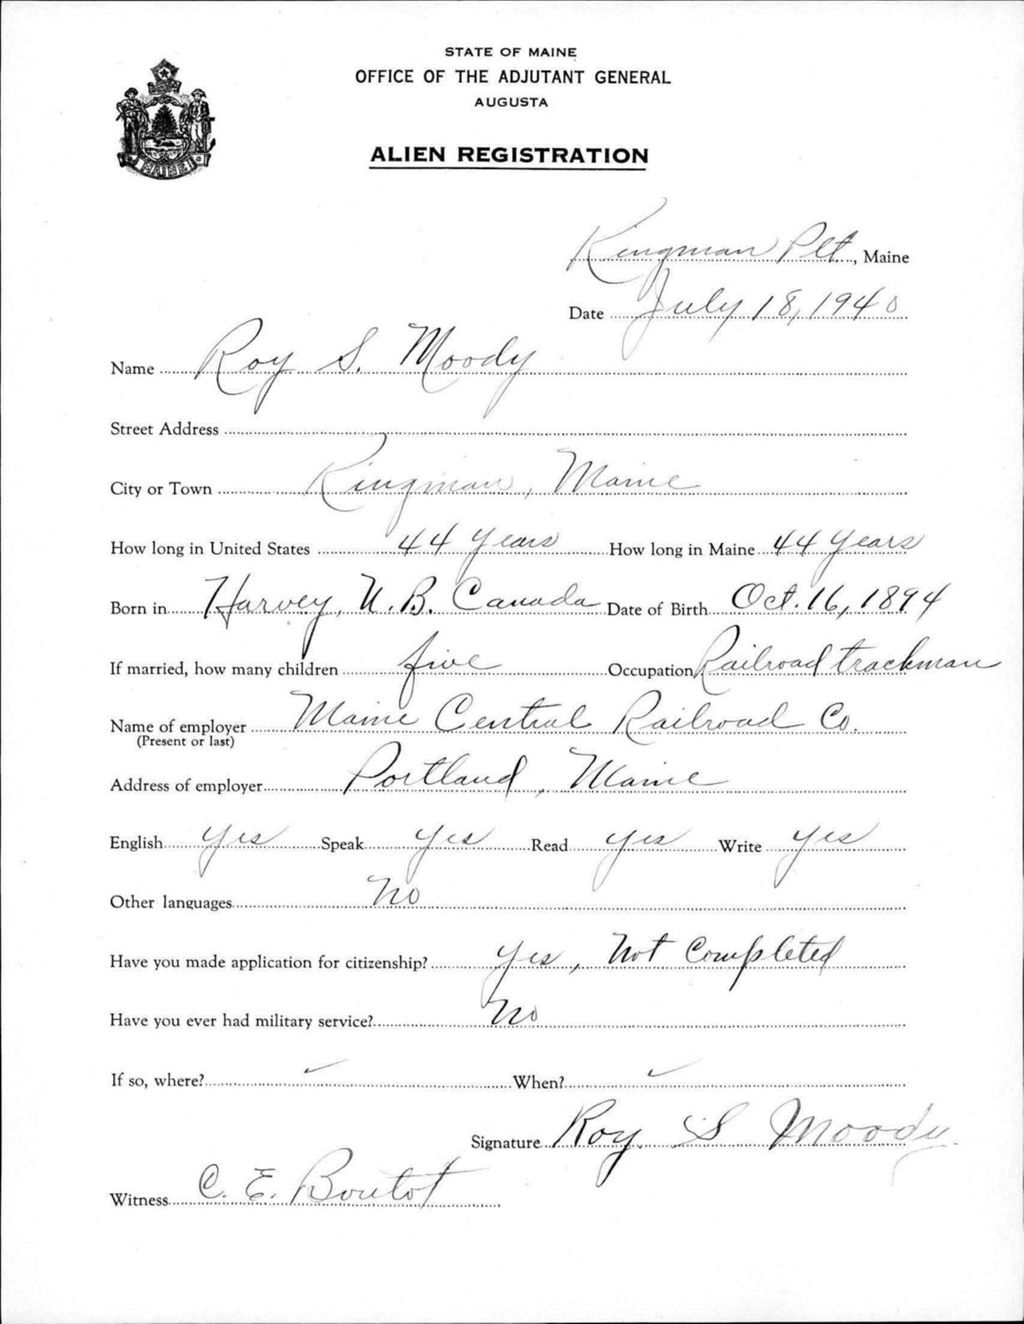 STATE OF MAINE
OFFICE OF THE ADJUTANT GENERAL
AUGUSTA
ALIEN REGISTRATION
MAINE
Kingman Plt., Maine
Date July 18, 1940
Name Roy S. Moody
Street Address
City or Town Kingman, Maine
How long in United States 44 years How long in Maine 44 years
Born in Harvey, N.B. Canada Date of Birth Oct. 16, 1894
If married, how many children five Occupation Railroad trackman
Name of employer Maine Central Railroad Co.
(Present or last)
Address of employer Portland, Maine
English Yes Speak Yes Read Yes Write Yes
Other languages No
Have you made application for citizenship? Yes, Not Completed
Have you ever had military service? No
If so, where? When?
Signature Roy S Moody
Witness C. E. Boutot